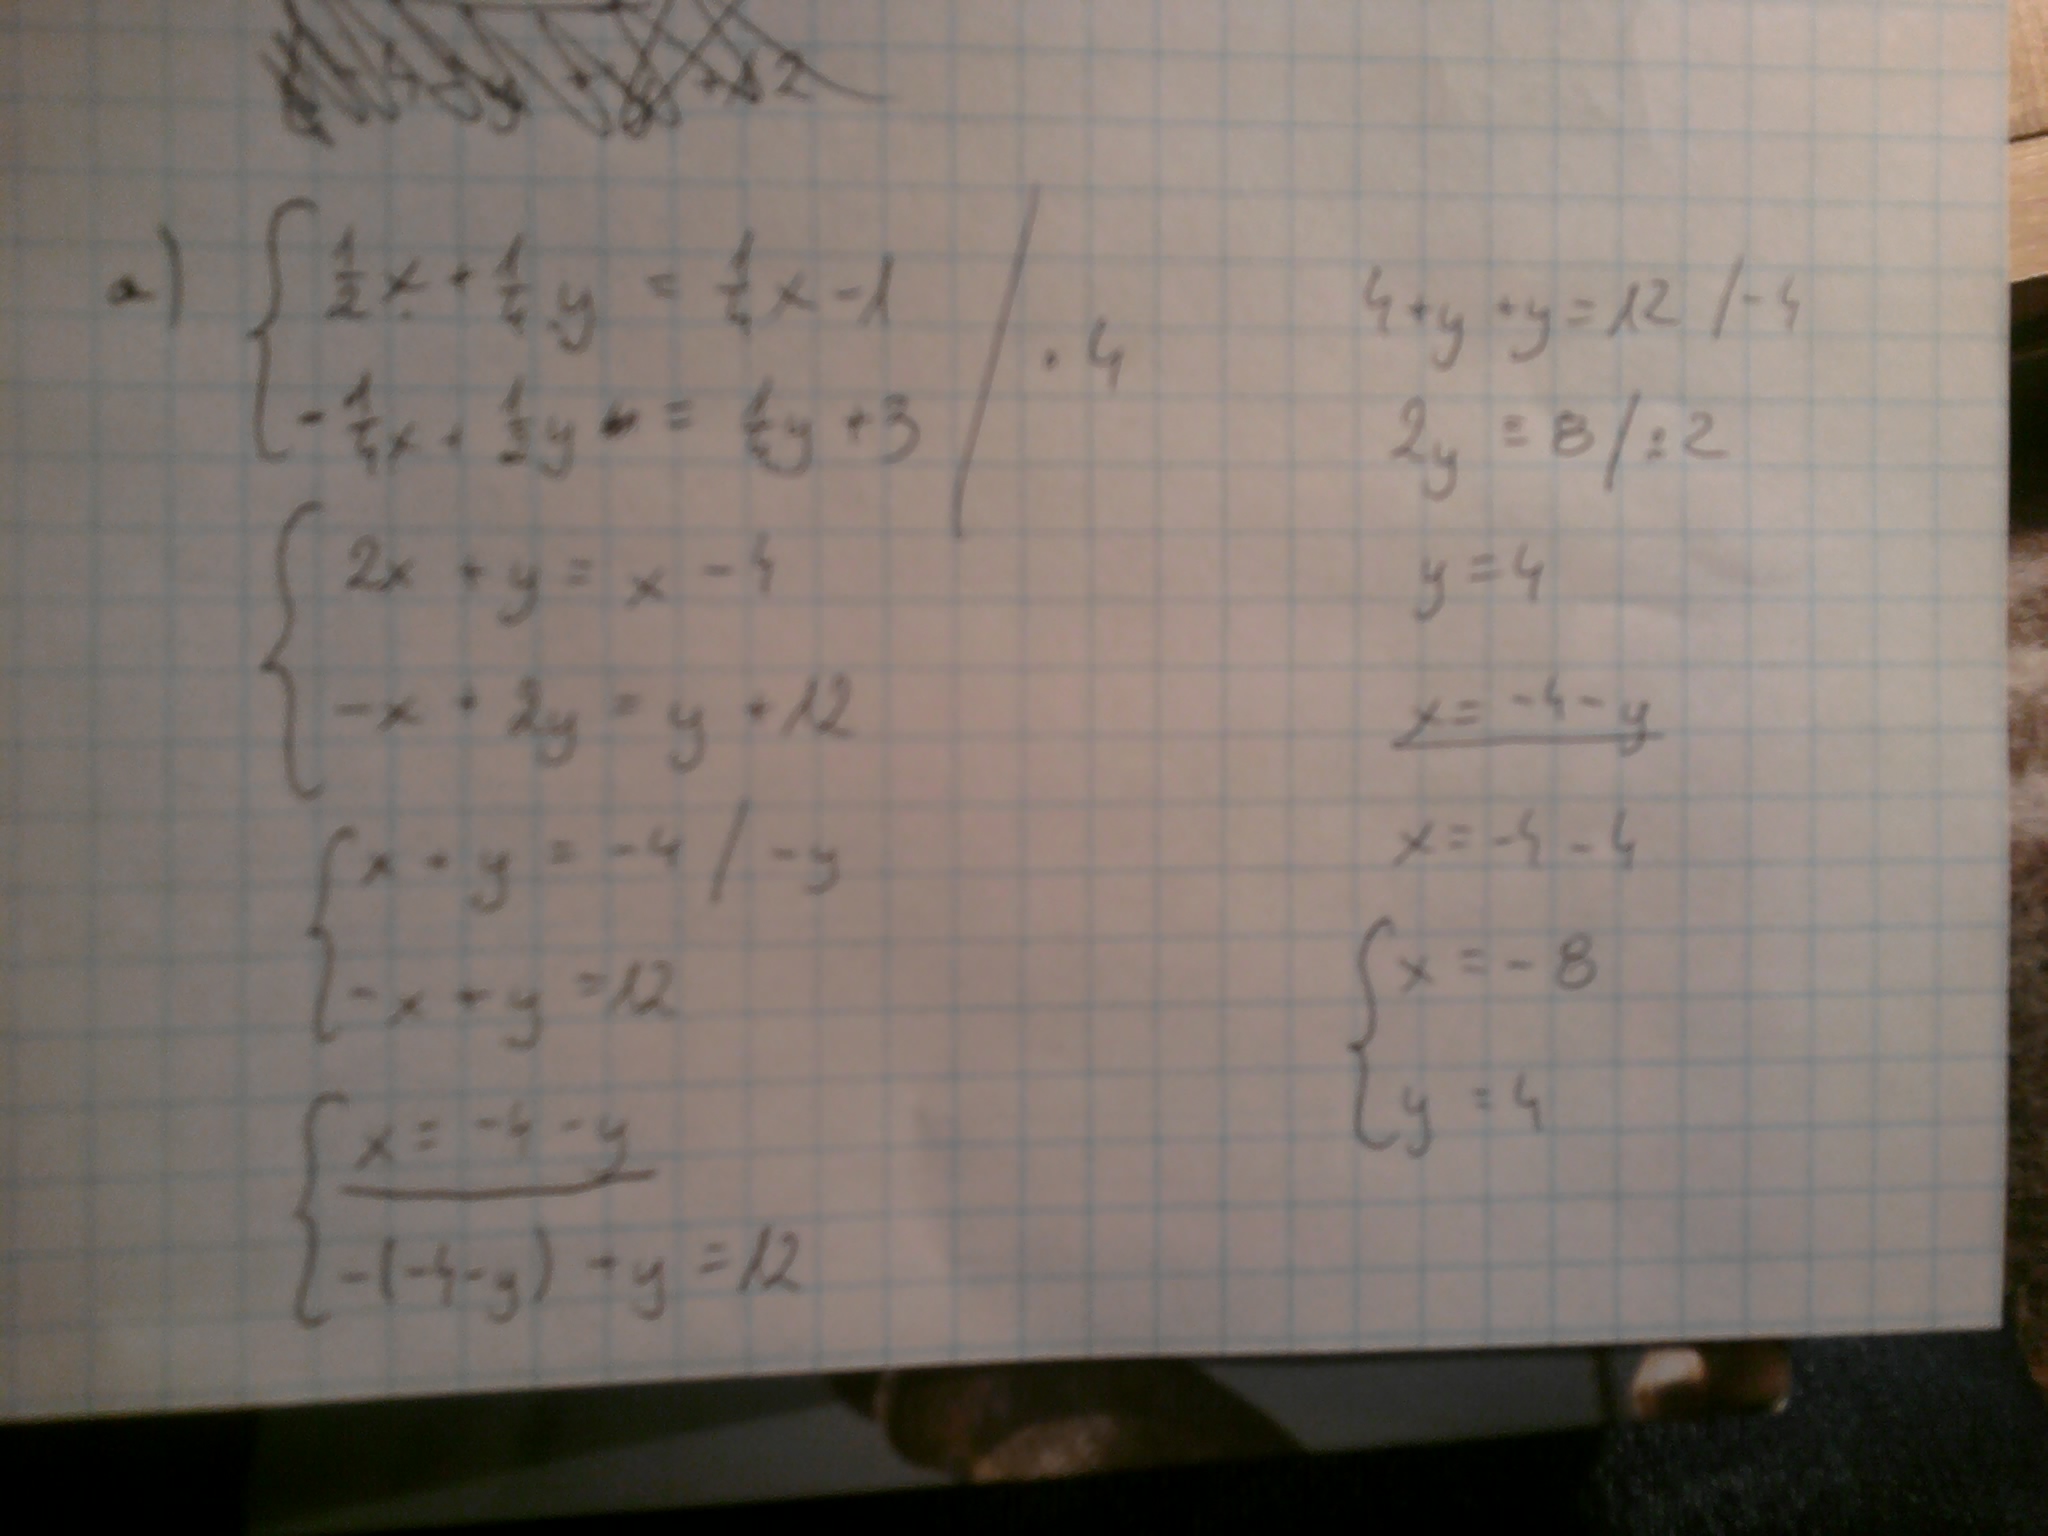 a) { 1/2 x + 1/4 y = 1/4 x - 1
- 1/4 x + 1/2 y = 1/4 y + 3 / · 4
{ 2x + y = x - 4
-x + 2y = y + 12
{ x + y = -4 / -y
-x + y = 12
{ x = -4 - y
-(-4-y) + y = 12
4 + y + y = 12 / -4
2y = 8 / :2
y = 4
x = -4 - y
x = -4 - 4
{ x = -8
y = 4